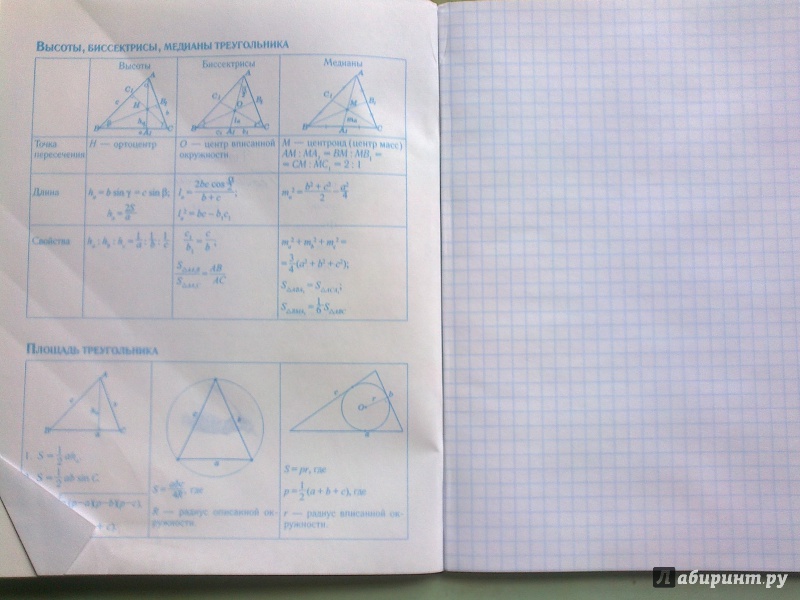 Высоты, биссектрисы, медианы треугольника
Высоты Биссектрисы Медианы
Точка пересечения
H — ортоцентр
O — центр вписанной
окружности
M — центроид (центр масс)
AM : MA₁ = BM : MB₁ =
= CM : MC₁ = 2 : 1
Длина
hₐ = b sin γ = c sin β;
hₐ = 2S/a
lₐ = 2bc cos α/2 / b + c;
lₐ² = bc − b₁c₁
mₐ² = b² + c²/2 − a²/4
Свойства
hₐ : h_b : h_c = 1/a : 1/b : 1/c
c₁/b₁ = c/b;
AB/AC
mₐ² + m_b² + m_c² =
= 3/4 (a² + b² + c²);
Площадь треугольника
1. S = 1/2 ahₐ
S = 1/2 ab sin C
S = abc/4R, где
R — радиус описанной ок-
ружности.
S = pr, где
p = 1/2 (a + b + c), где
r — радиус вписанной ок-
ружности.
Лабиринт.ру